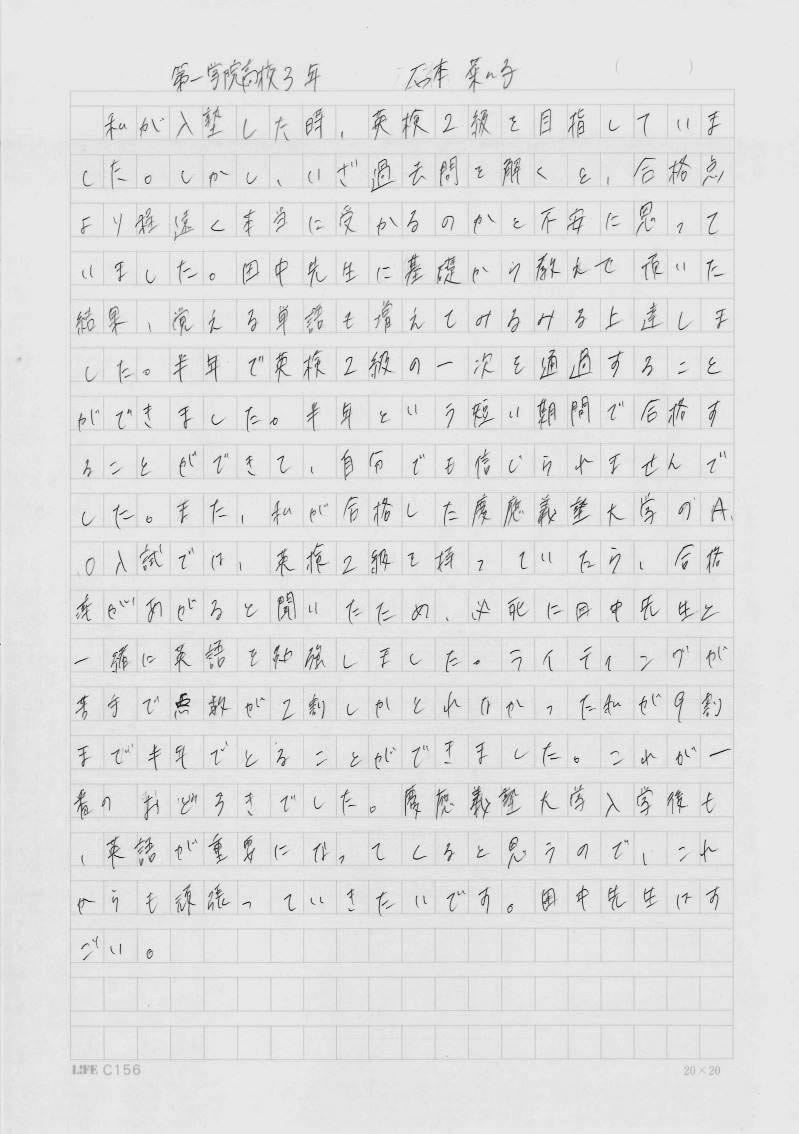 第一学院高校3年 石本 菜の子 ( )
私が入塾した時、英検2級を目指していま
した。しかし、いざ過去問を解くと、合格点
より程遠く本当に受かるのかと不安に思って
いました。田中先生に基礎から教えて頂いた
結果、覚える単語も増えてみるみる上達しま
した。半年で英検2級の一次を通過すること
ができました。半年という短い期間で合格す
ることができて、自分でも信じられませんで
した。また、私が合格した慶應義塾大学のA.
O入試では、英検2級を持っていたら、合格
率があがると聞いたため、必死に田中先生と
一緒に英語を勉強しました。ライティングが
苦手で点数が2割しかとれなかった私が9割
まで半年でとることができました。これが一
番のおどろきでした。慶應義塾大学入学後も
、英語が重要になってくると思うので、これ
からも頑張っていきたいです。田中先生はす
ごい。
LIFE C156 20×20